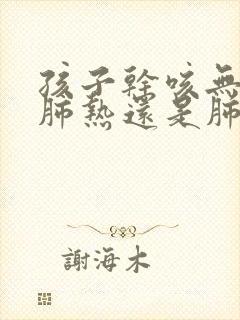 孩子幹咳無
肺熱還是肺
謝海木